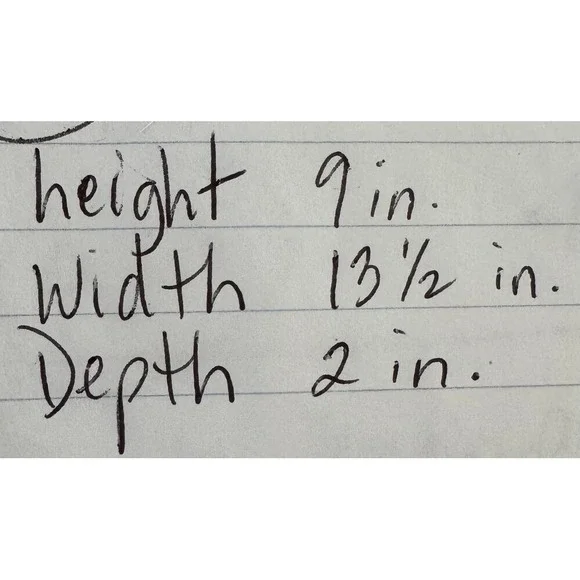 height 9 in.
Width 13 1/2 in.
Depth 2 in.